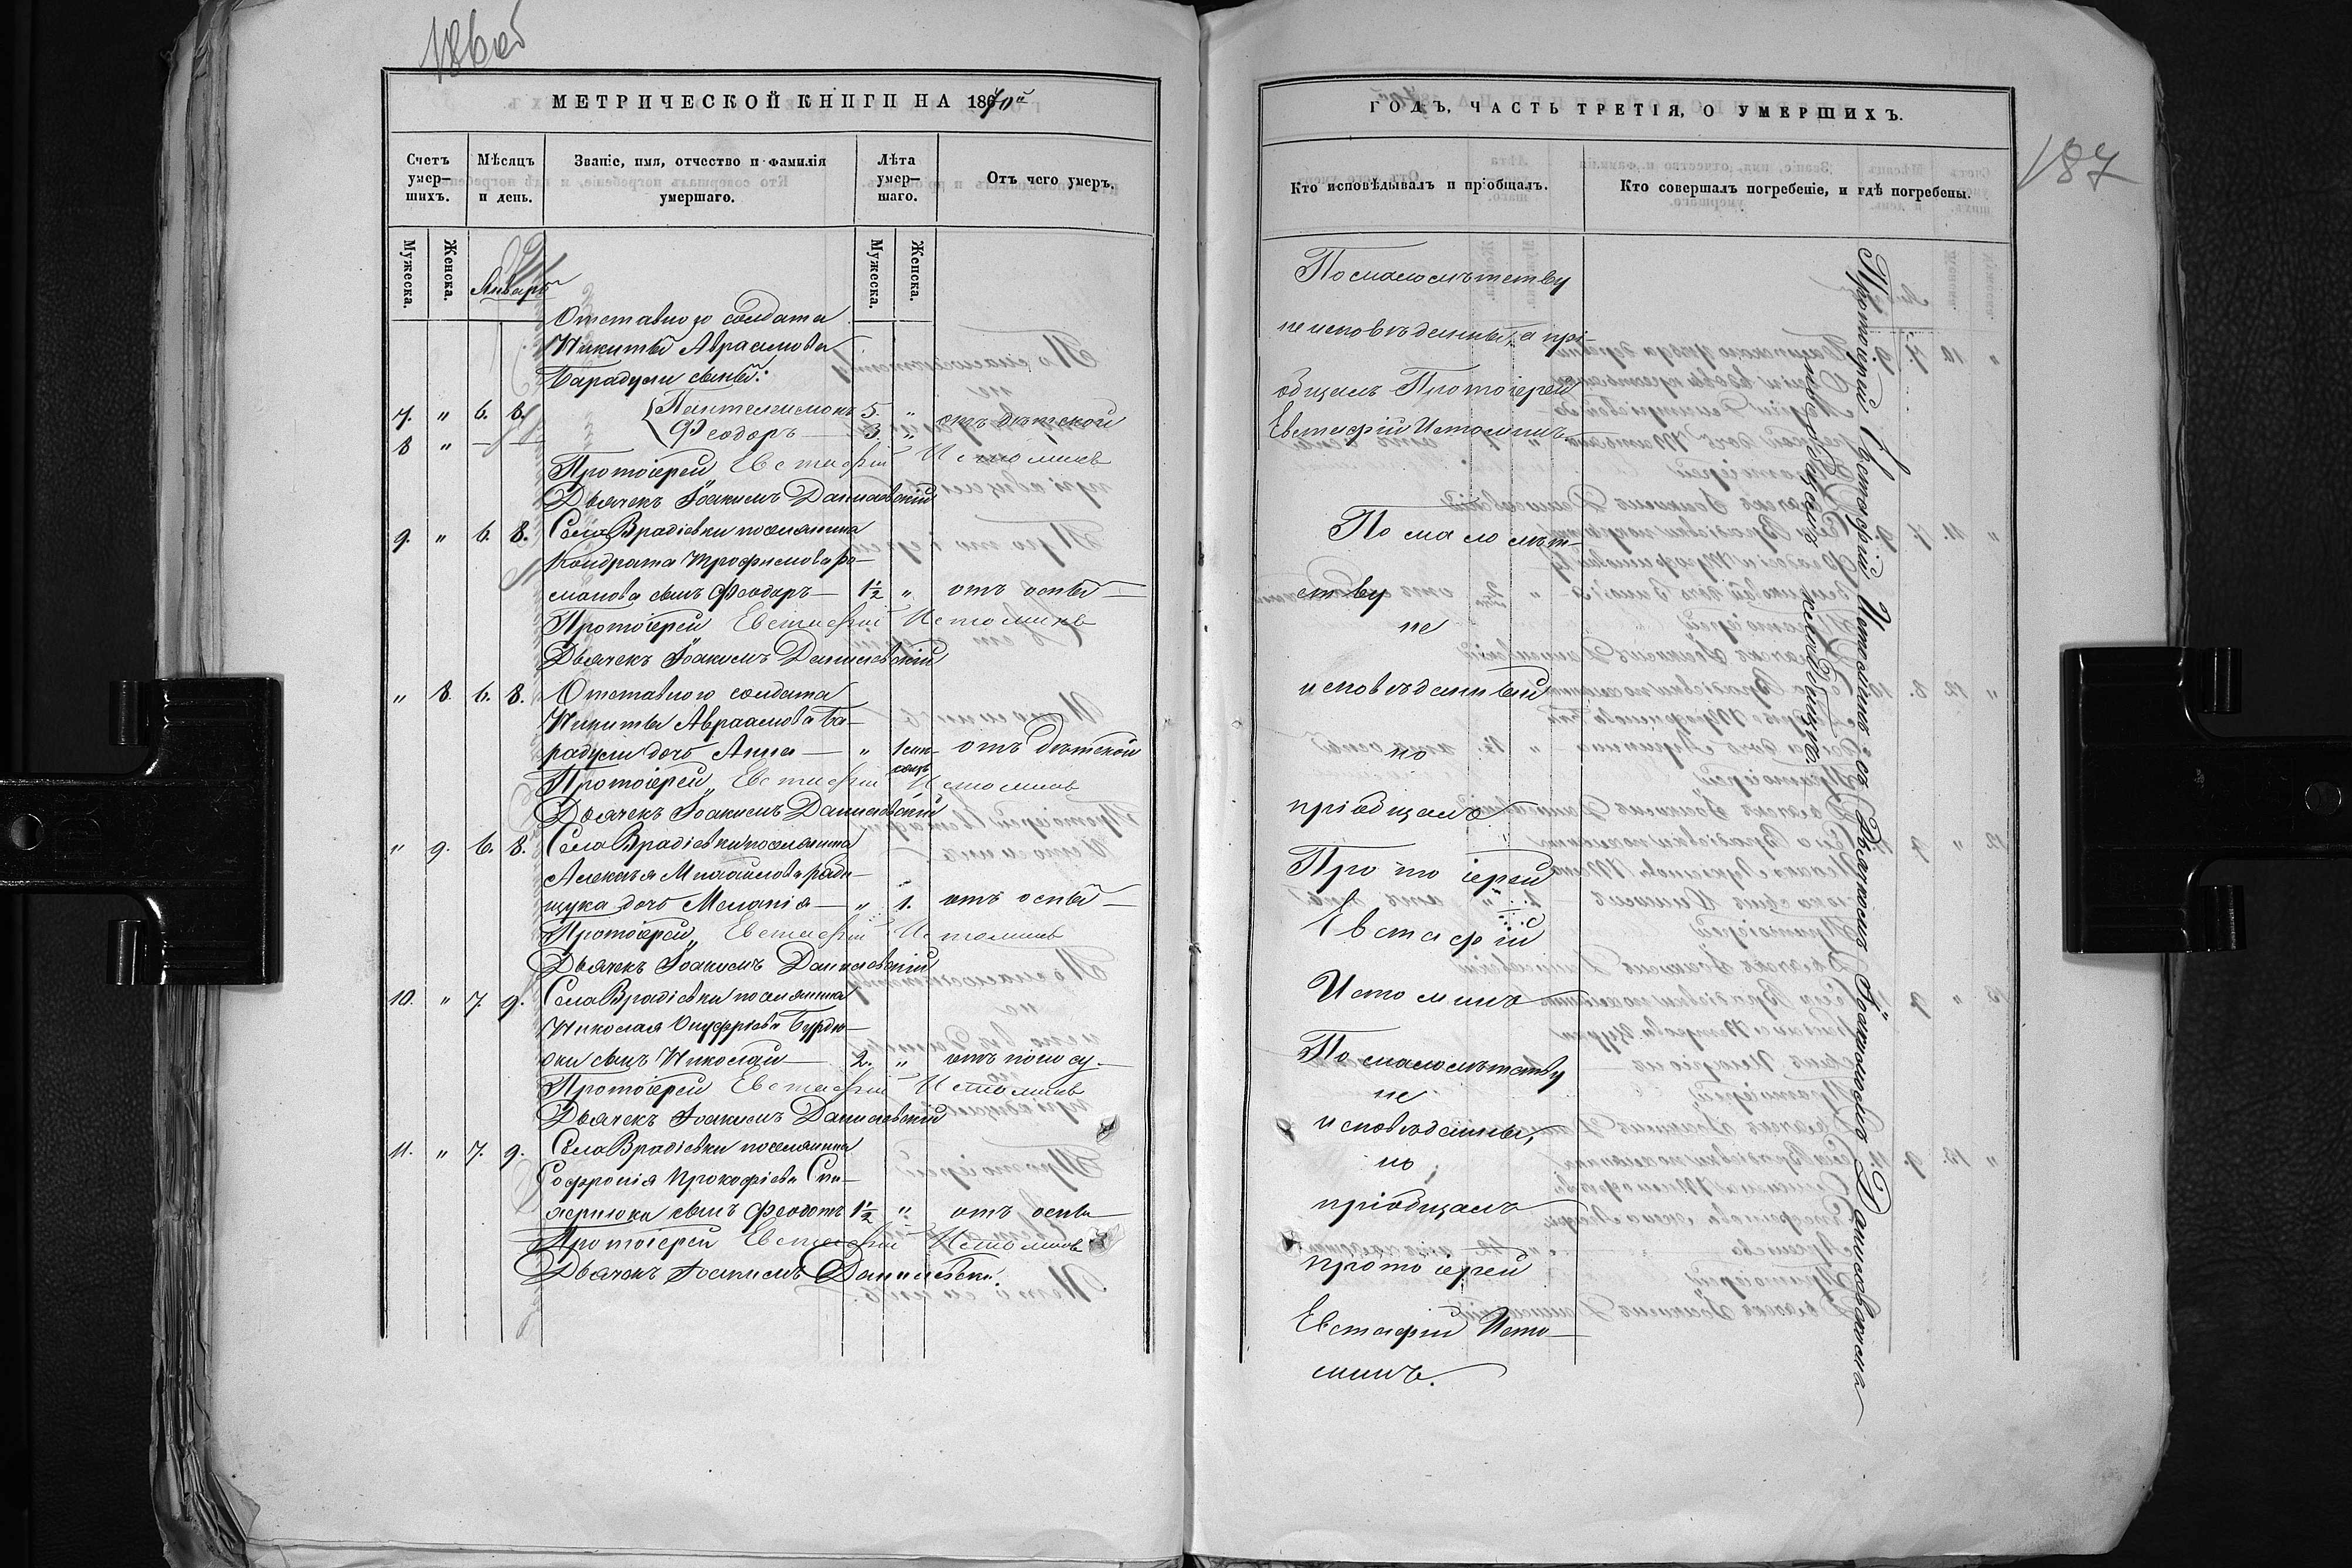 186 об
МЕТРИЧЕСКОЙ КНИГИ НА 1870й
Счетъ умер-шихъ.
Мѣсяцъ и день.
Званіе, имя, отчество и фамилія умершаго.
Лѣта умер-шаго.
Отъ чего умеръ.
Мужеска.
Женска.
Январь
Мужеска.
Женска.
Отставного солдата
Никиты Авраамова
Барадули сыны:
7. " 6. 8. Пантелеимонъ 5. " отъ дѣтской
8 " — — Феодоръ — 3. "
Протоіерей Евстафій Истоминъ
Дьячекъ Іоакимъ Данилевскій
9. " 6. 8. Села Врадіевки поселянина
Кондрата Трофимова Ро-
манова сынъ Феодоръ — 1½ " отъ оспы —
Протоіерей Евстафій Истоминъ
Дьячекъ Іоакимъ Данилевскій
" 8. 6. 8. Отставного солдата
Никиты Авраамова Ба-
радули дочь Анна — " 1 мѣ- отъ дѣтской
сяцъ
Протоіерей Евстафій Истоминъ
Дьячекъ Іоакимъ Данилевскій
" 9. 6. 8. Села Врадіевки поселянина
Алексѣя Михайлова
щука дочь Меланія — " 1. отъ оспы —
Протоіерей Евстафій Истоминъ
Дьячекъ Іоакимъ Данилевскій
10. " 7. 9. Села Врадіевки поселянина
Николая Онуфріева
сынъ Николай — 2. " отъ поносу —
Протоіерей Евстафій Истоминъ
Дьячекъ Іоакимъ Данилевскій
11. " 7. 9. Села Врадіевки поселянина
Софронія Прокофіева
сынъ Феодотъ 1½ " отъ оспы
Протоіерей Евстафій Истоминъ
Дьячекъ Іоакимъ Данилевскій.
ГОДЪ, ЧАСТЬ ТРЕТІЯ, О УМЕРШИХЪ.
187
Кто исповѣдывалъ и пріобщалъ.
Кто совершалъ погребеніе, и гдѣ погребены.
По малолѣтству
не исповѣданы, а прі-
общалъ Протоіерей
Евстафій Истоминъ
По малолѣт-
ству
не
исповѣданный
но
пріобщалъ
Протоіерей
Евстафій
Истоминъ
По малолѣтству
не
исповѣданы,
но
пріобщалъ
протоіерей
Евстафій Исто-
минъ.
Протоіерей Евстафій Истоминъ съ Дьячкомъ Іоакимомъ Данилевскимъ
на общемъ
кладбищѣ